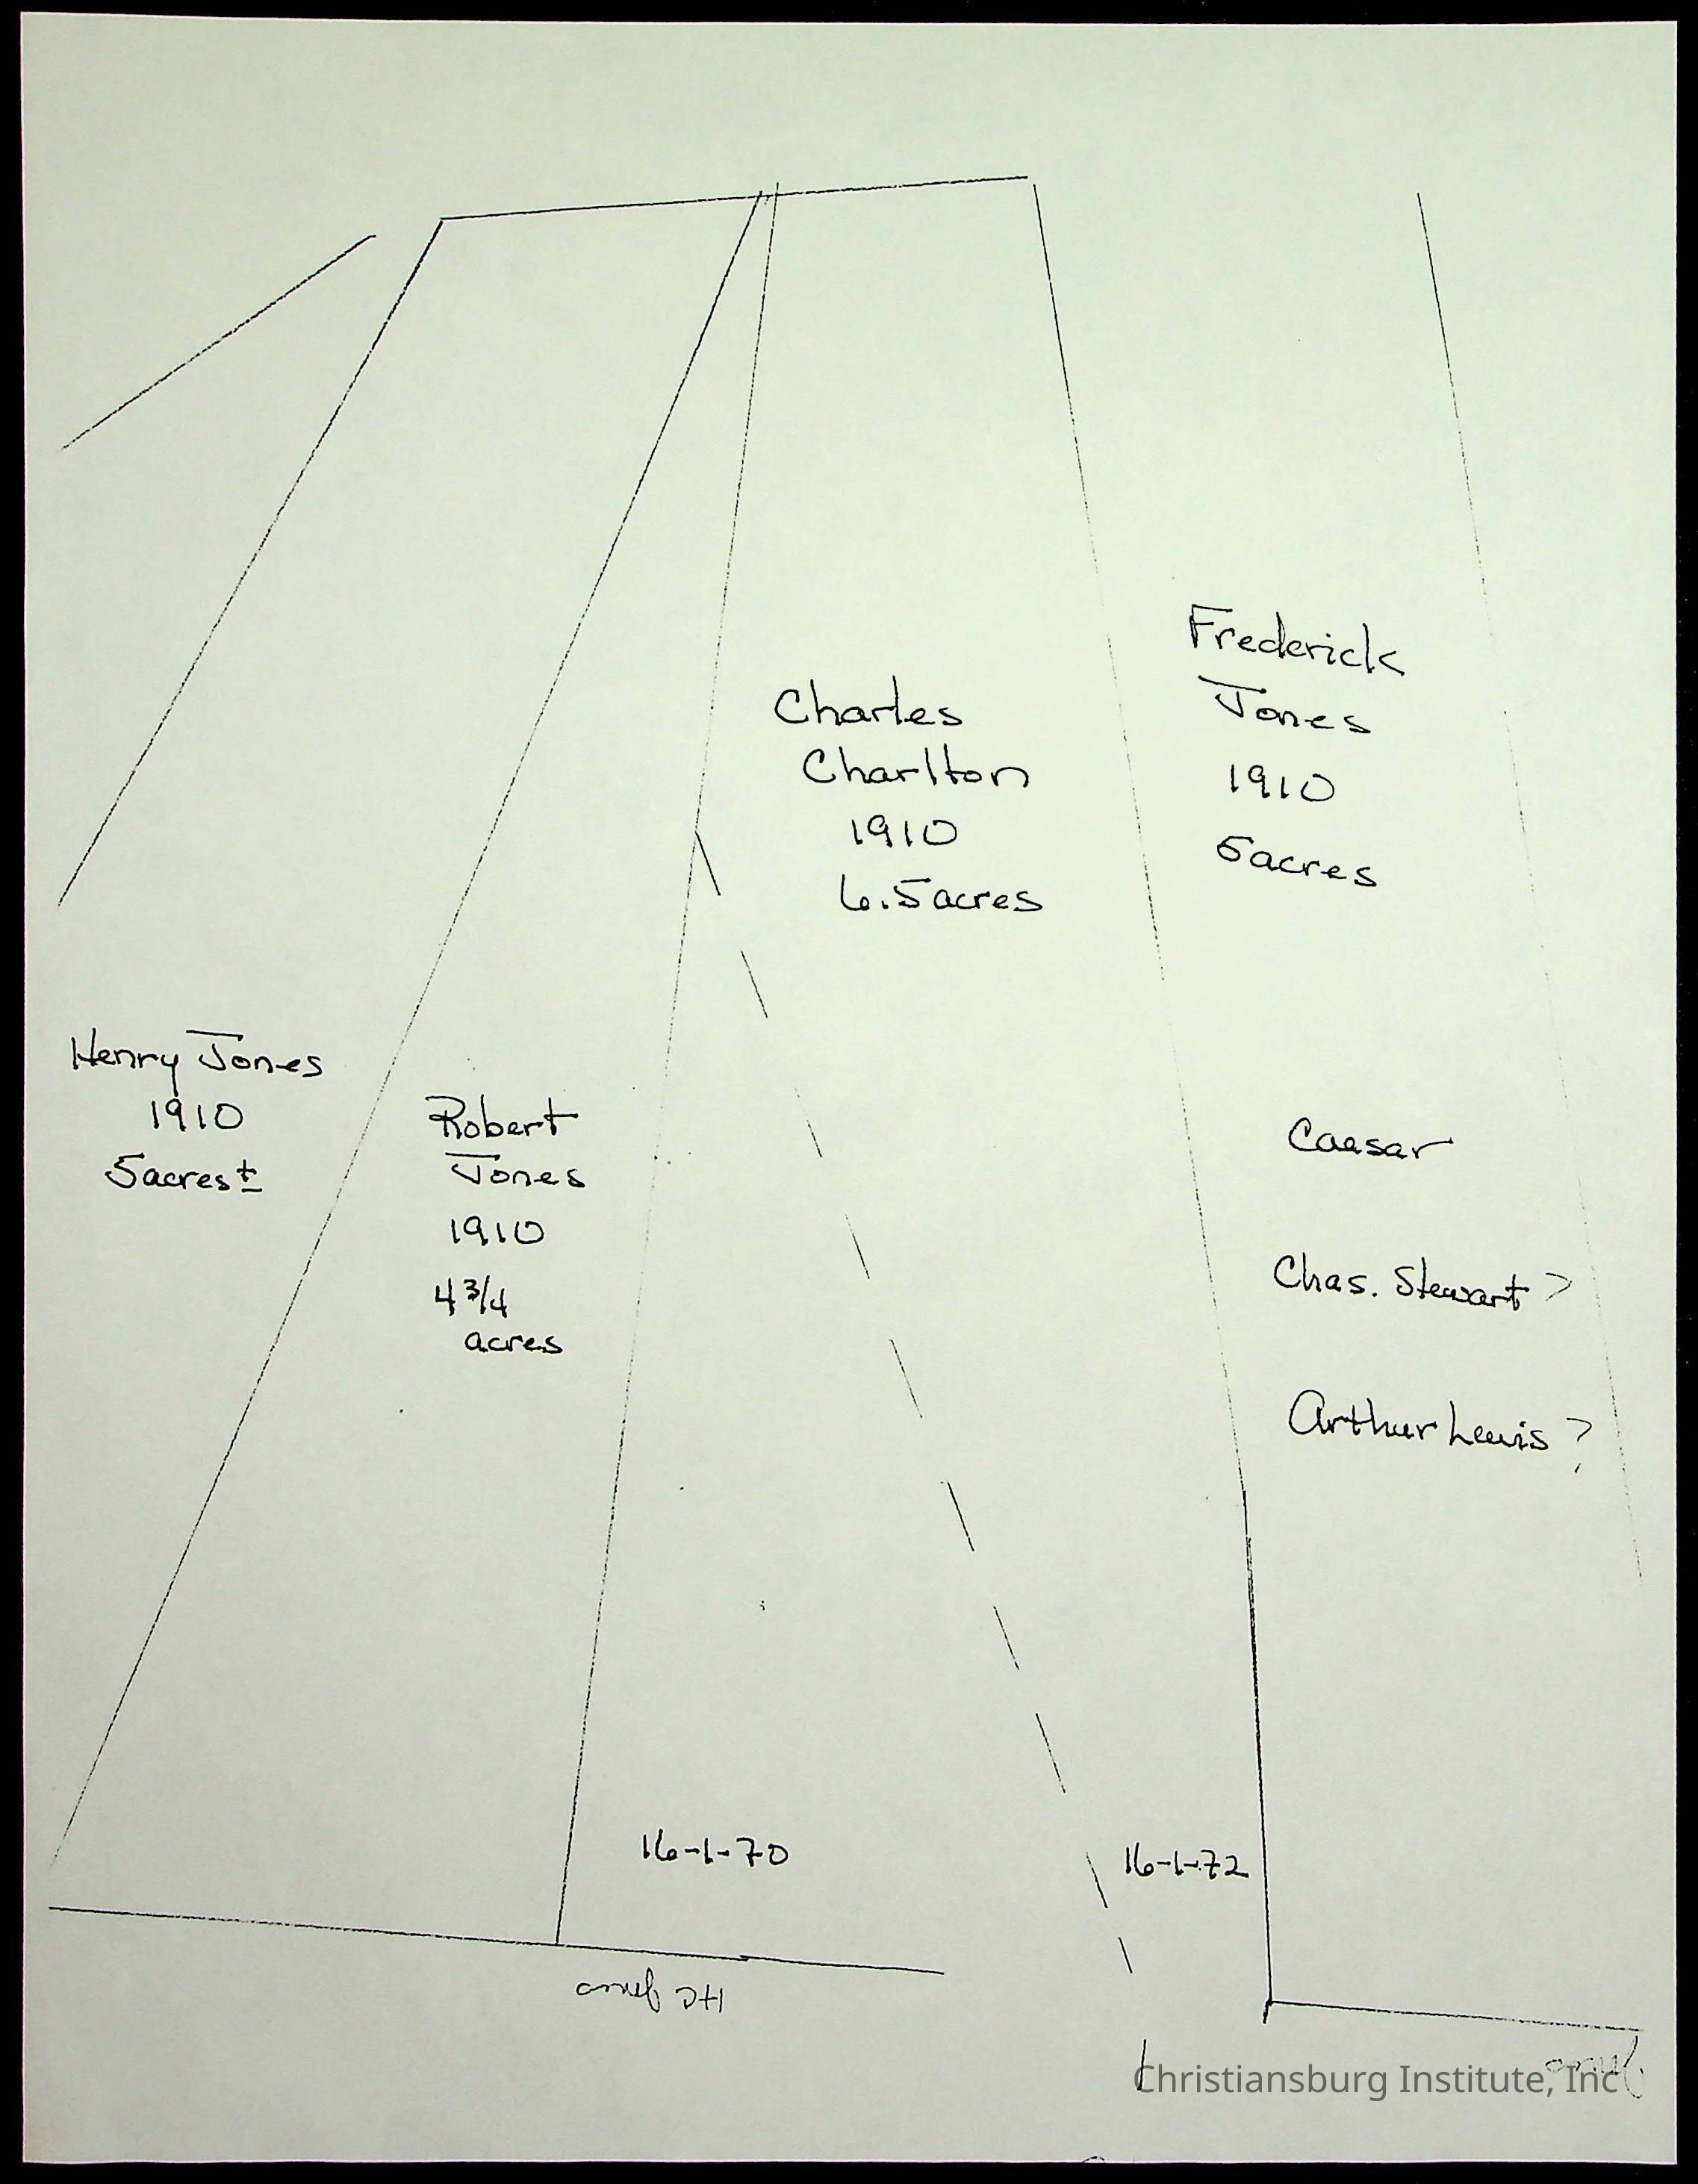 Frederick
Jones
1910
5acres
Charles
Charlton
1910
6.5acres
Henry Jones
1910
5acres±
Robert
Jones
1910
4 3/4
acres
Caesar
Chas. Stewart ?
Arthur Lewis ?
16-1-70
16-1-72
Christiansburg Institute, Inc